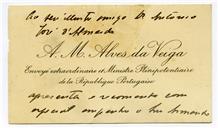 Ao seu illustre amigo Dr António
José d'Almeida
A. M. Alves da Veiga
Envoyé extraordinaire et Ministre Plénipotentiaire
de la République Portugaise
apresenta e recommenda com
especial